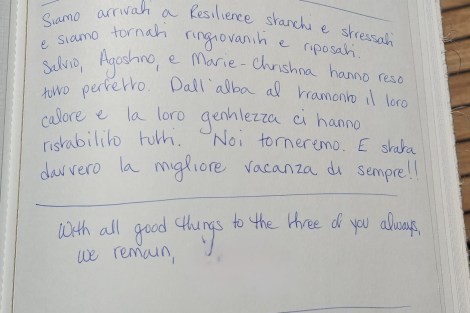 Siamo arrivati a Resilience stanchi e stressati
e siamo tornati ringiovaniti e riposati.
Salvio, Agostino, e Marie-Christina hanno reso
tutto perfetto. Dall'alba al tramonto il loro
calore e la loro gentilezza ci hanno
ristabilito tutti. Noi torneremo. E stata
davvero la migliore vacanza di sempre!!
With all good things to the three of you always,
we remain,